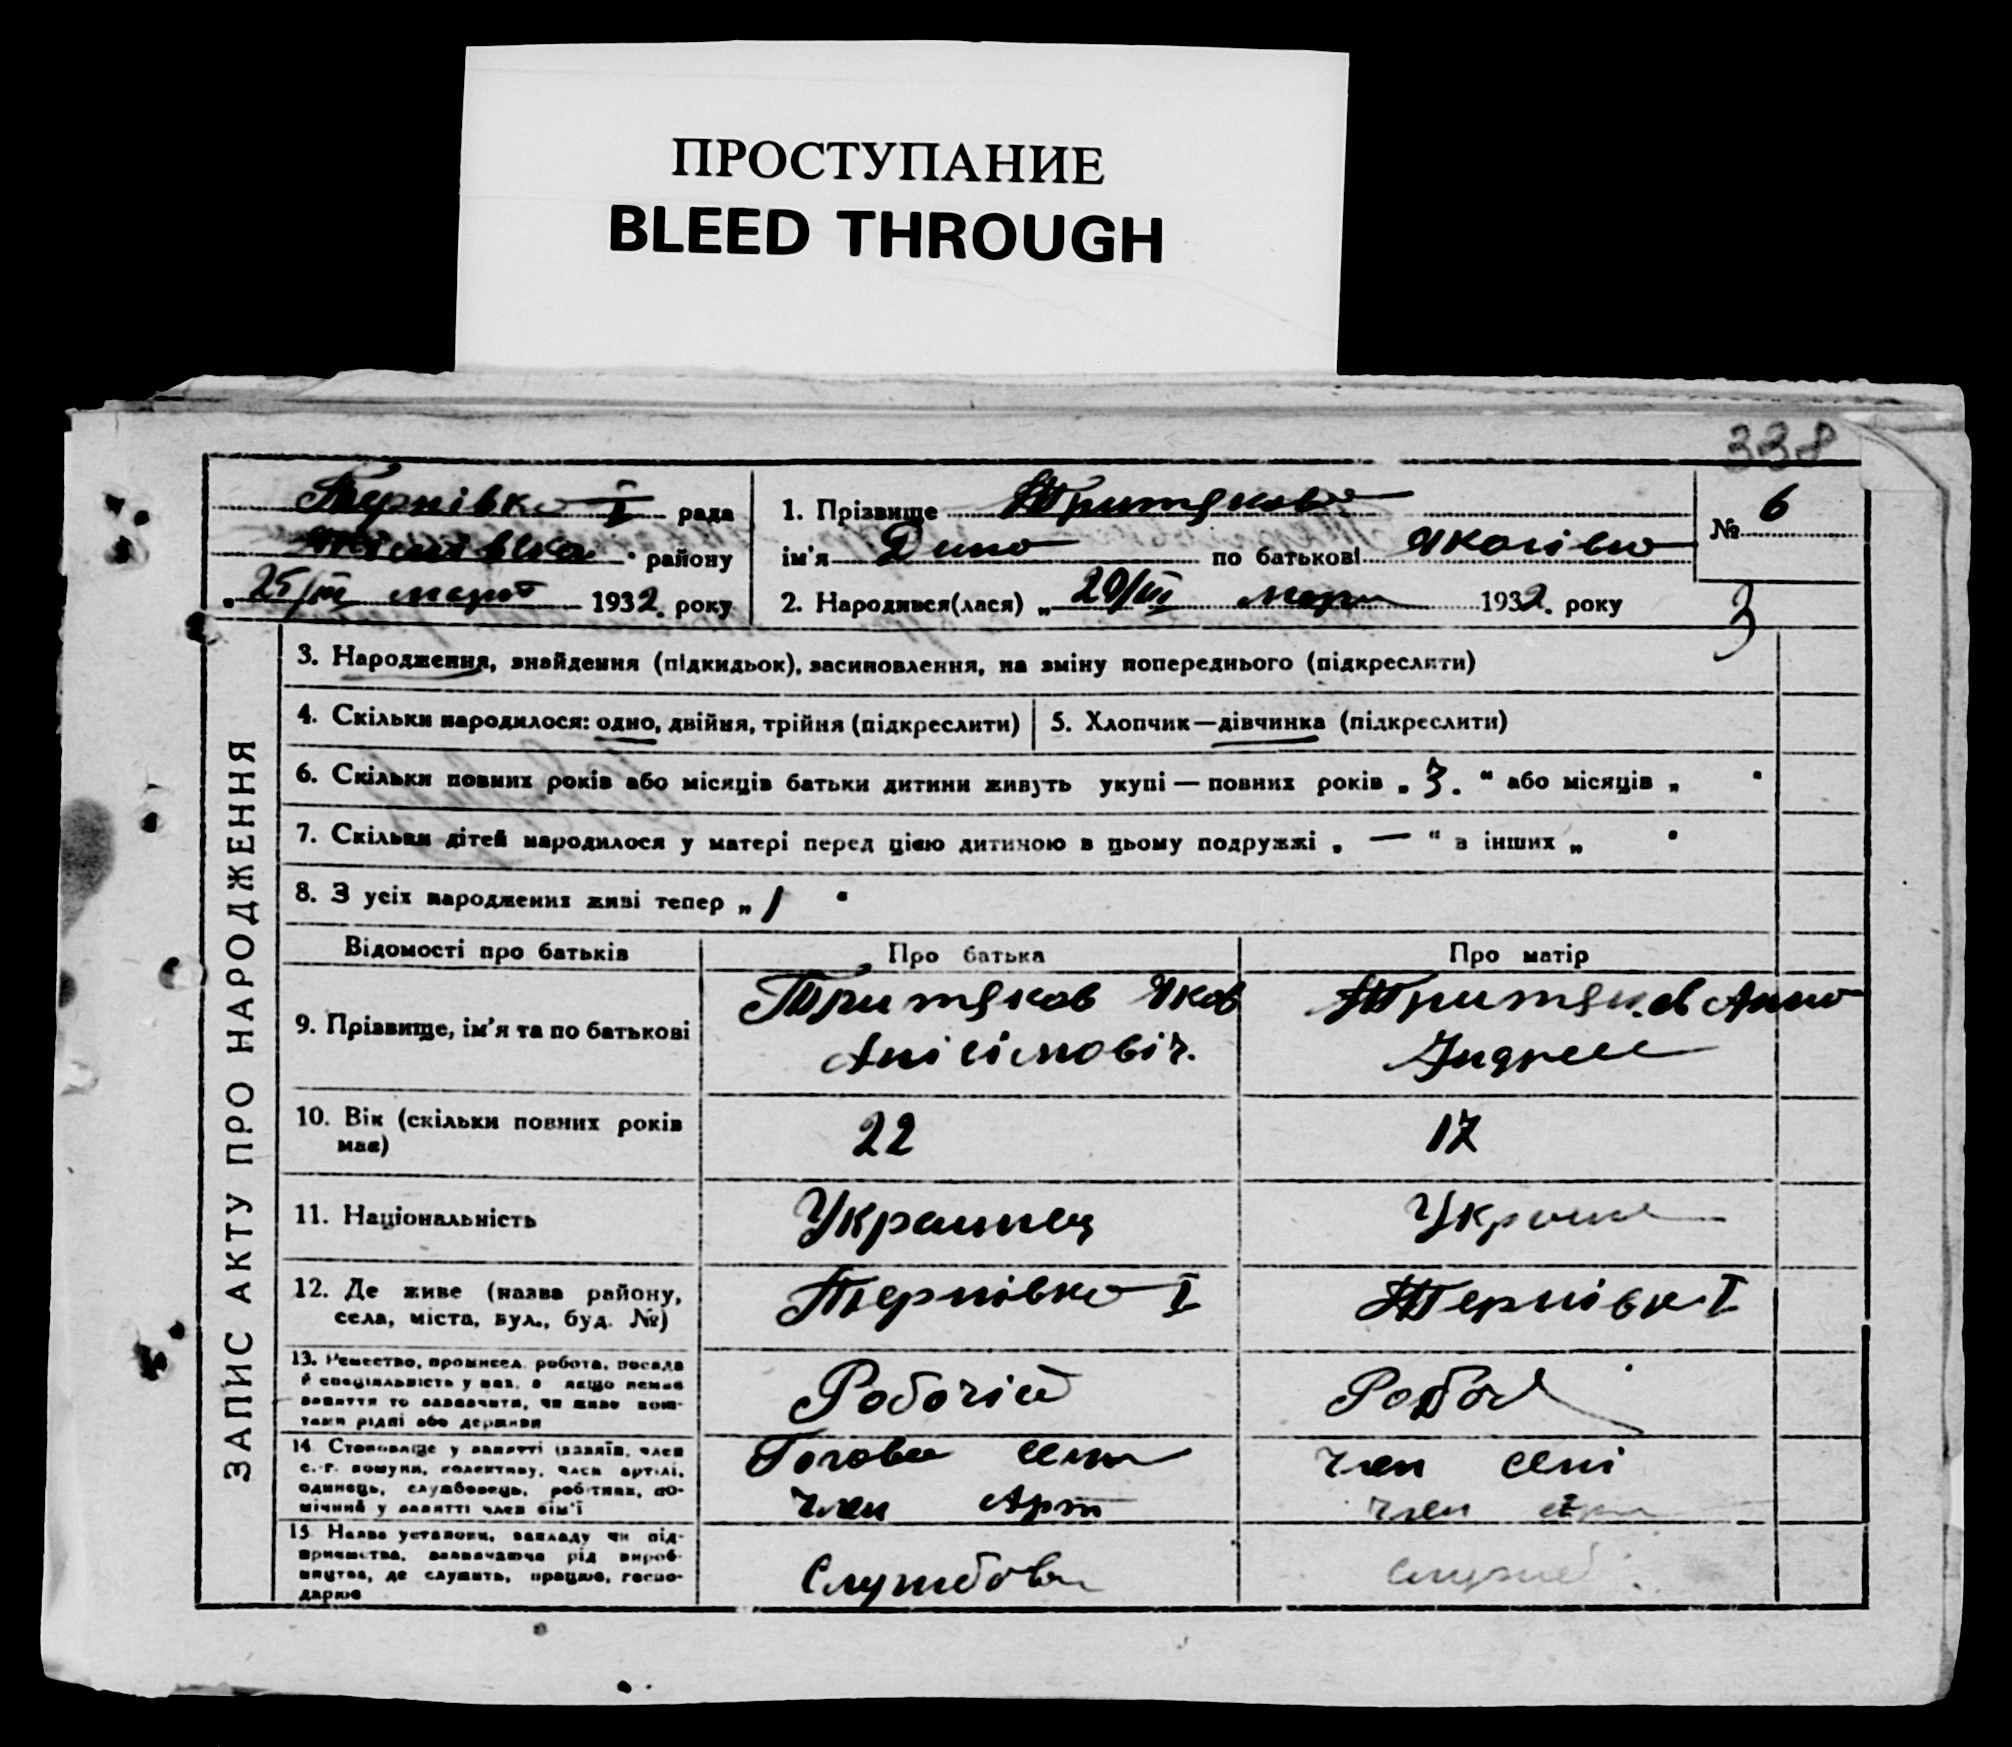 ПРОСТУПАНИЕ
BLEED THROUGH
338
Тернівка І рада
району
25/III март 1932. року
1. Прізвище Тритякова
ім'я Дина по батькові Яковівна
2. Народився(лася) „ 20/III март 1932. року
№ 6
3
ЗАПИС АКТУ ПРО НАРОДЖЕННЯ
3. Народження, знайдення (підкидьок), засиновлення, на зміну попереднього (підкреслити)
4. Скільки народилося: одно, двійня, трійня (підкреслити)
5. Хлопчик—дівчинка (підкреслити)
6. Скільки повних років або місяців батьки дитини живуть укупі — повних років „ 3. “ або місяців „ “
7. Скільки дітей народилося у матері перед цією дитиною в цьому подружжі „ — “ в інших „ “
8. З усіх народжених живі тепер „ 1 “
Відомості про батьків Про батька Про матір
9. Прізвище, ім'я та по батькові
Тритяков Яков
Анісімовіч.
Тритяков Анна
Андрее
10. Вік (скільки повних років
має)
22
17
11. Національність
Украинец
Украин
12. Де живе (назва району,
села, міста, вул., буд. №)
Тернівка І
Тернівк І
13. Ремество, промисел, робота, посада
й спеціяльність у них, а якщо немає
заняття то зазначити, чи живе кош-
тами рідні або держави
Робочій
Робоч
14. Становище у занятті (хазяїн, член
с.-г. комуни, колективу, член артілі,
одинець, службовець, робітник, по-
мічний у занятті член сім'ї
Голова семи
член Арт
член семі
член Арт
15. Назва установи, закладу чи під-
приємства, зазначаючи рід вироб-
ництва, де служить, працює, госпо-
дарює
Службов